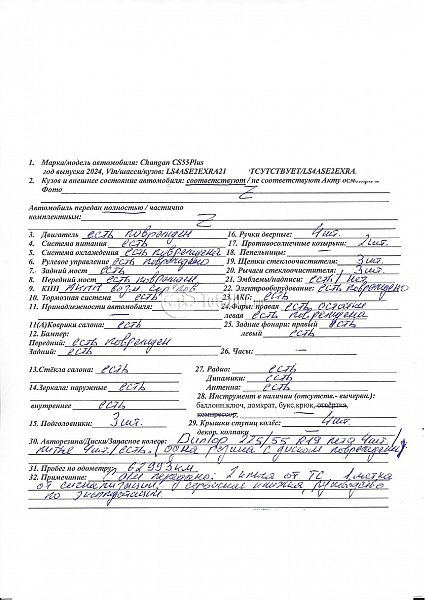 1. Марка/модель автомобиля: Changan CS55Plus
год выпуска 2024, Vin/шасси/кузов: LS4ASE2EXRA21 ТСУТСТВУЕТ/LS4ASE2EXRA
2. Кузов и внешнее состояние автомобиля: соответствуют / не соответствуют Акту осмотра и
Фото Z
Автомобиль передан полностью / частично
комплектным: Z
3. Двигатель есть поврежден
4. Система питания есть
5. Система охлаждения есть повреждена
6. Рулевое управление есть повреждено
7. Задний мост есть
8. Передний мост есть поврежден
9. КПП АКПП есть
10. Тормозная система есть
11. Принадлежности автомобиля:
11(А)Коврики салона есть
12. Бампер:
Передний: есть поврежден
Задний: есть
13.Стёкла салона: есть
14.Зеркала: наружные есть
внутреннее есть
15. Подголовники: 3 шт.
16. Ручки дверные: 4 шт.
17. Противосолнечные козырьки: 2 шт.
18. Пепельницы: —
19. Щетки стеклоочистителя: 3 шт.
20. Рычаги стеклоочистителя: 3 шт.
21. Эмблемы/надписи: есть / нет
22. Электрооборудование: есть повреждено
23. АКБ: есть
24. Фары: правая есть остатки
левая есть повреждена
25. Задние фонари: правый есть
левый есть
26. Часы: —
27. Радио: есть
Динамики: есть
Антенна: есть
28. Инструмент в наличии (отсутств.- вычерки.):
баллонн.ключ, домкрат, букс.крюк, отвёртка,
компрессор.
29. Крышки ступиц колёс: 4 шт.
декор. колпаки
30. Авторезина/Диски/Запасное колесо: Dunlop 225/55 R19 лета 4шт.
литье 4шт./есть. (одна резина с диском повреждены)
31. Пробег по одометру: 62993 км
32. Примечание: переданы: 2 ключа от ТС 1 метка
от сигнализации, сервисная книжка, руководство
по эксплуатации